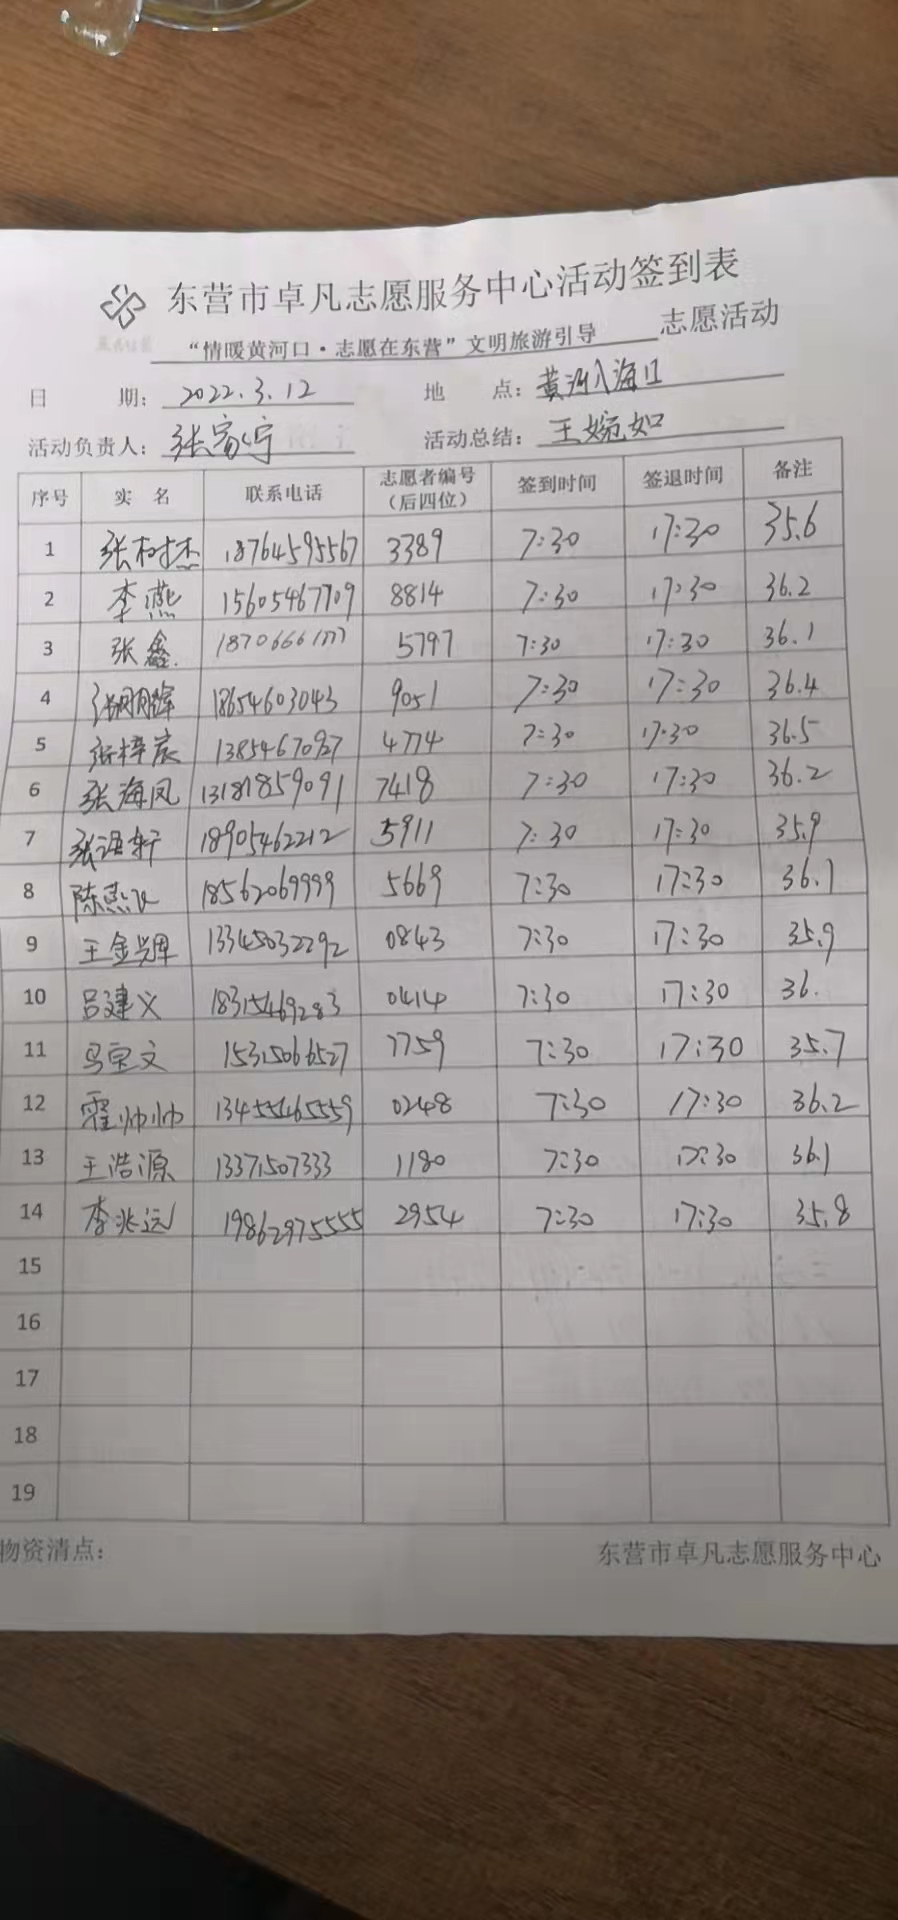 东营市卓凡志愿服务中心活动签到表
“情暖黄河口·志愿在东营”文明旅游引导 志愿活动
日 期: 2022.3.12 地 点: 黄河入海口
活动负责人: 张家宁 活动总结: 王婉如
序号 实 名 联系电话 志愿者编号（后四位） 签到时间 签退时间 备注
1 张树杰 18764595567 3389 7:30 17:30 35.6
2 李燕 15605467709 8814 7:30 17:30 36.2
3 张鑫 5797 7:30 17:30 36.1
4 18654603043 9051 7:30 17:30 36.4
5 张梓宸 4774 7:30 17:30 36.5
6 张海凤 13181859091 7418 7:30 17:30 36.2
7 张语轩 18905462212 5911 7:30 17:30 35.9
8 陈燕飞 18562069999 5669 7:30 17:30 36.1
9 王金辉 13345032292 0843 7:30 17:30 35.9
10 吕建义 18315469283 0414 7:30 17:30 36.
11 马宝文 15315066527 7759 7:30 17:30 35.7
12 霍帅帅 13455465559 0248 7:30 17:30 36.2
13 王浩源 13371507333 1180 7:30 17:30 36.1
14 李兆远 19862975555 2954 7:30 17:30 35.8
15
16
17
18
19
物资清点: 东营市卓凡志愿服务中心